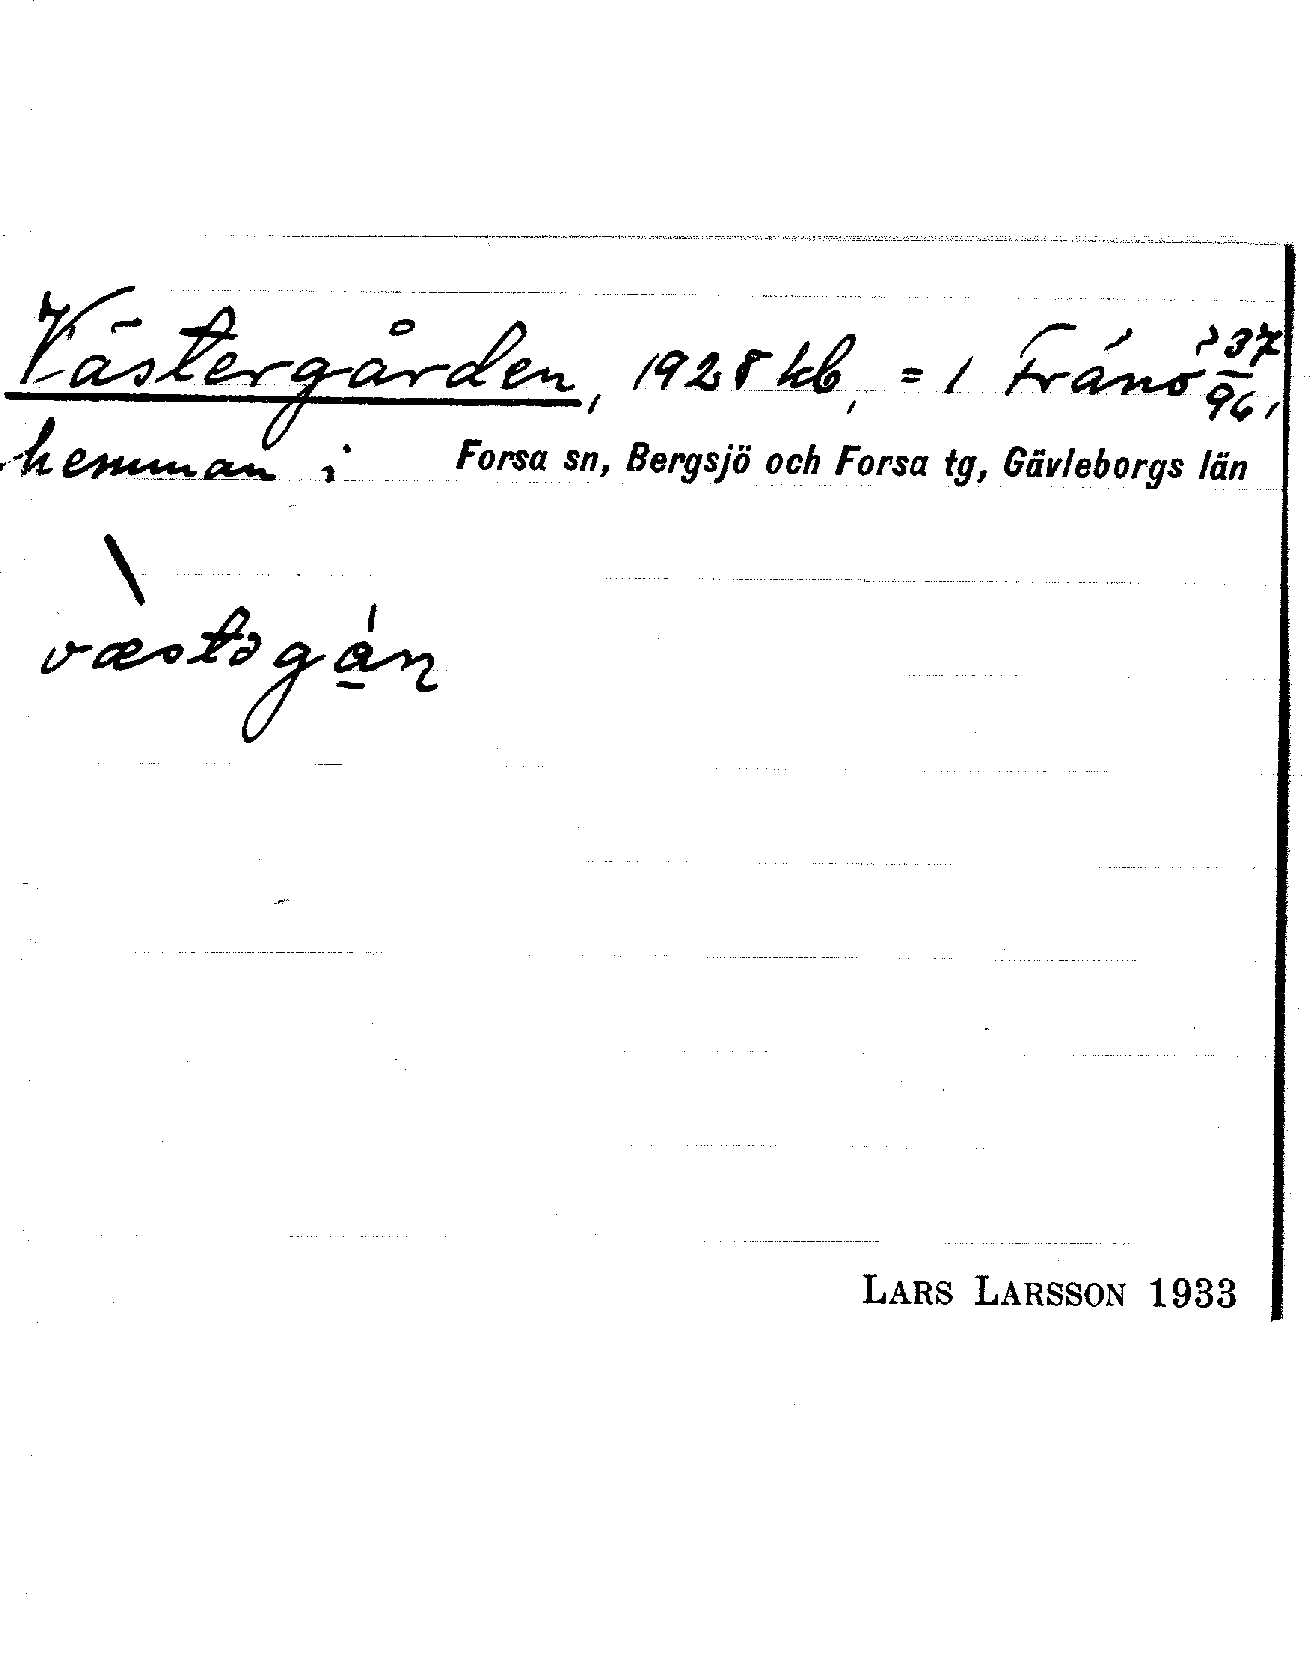 Västergården, 1928 kb, = 1 Frånö 37/96,
hemman i Forsa sn, Bergsjö och Forsa tg, Gävleborgs län
væstəgån
LARS LARSSON 1933